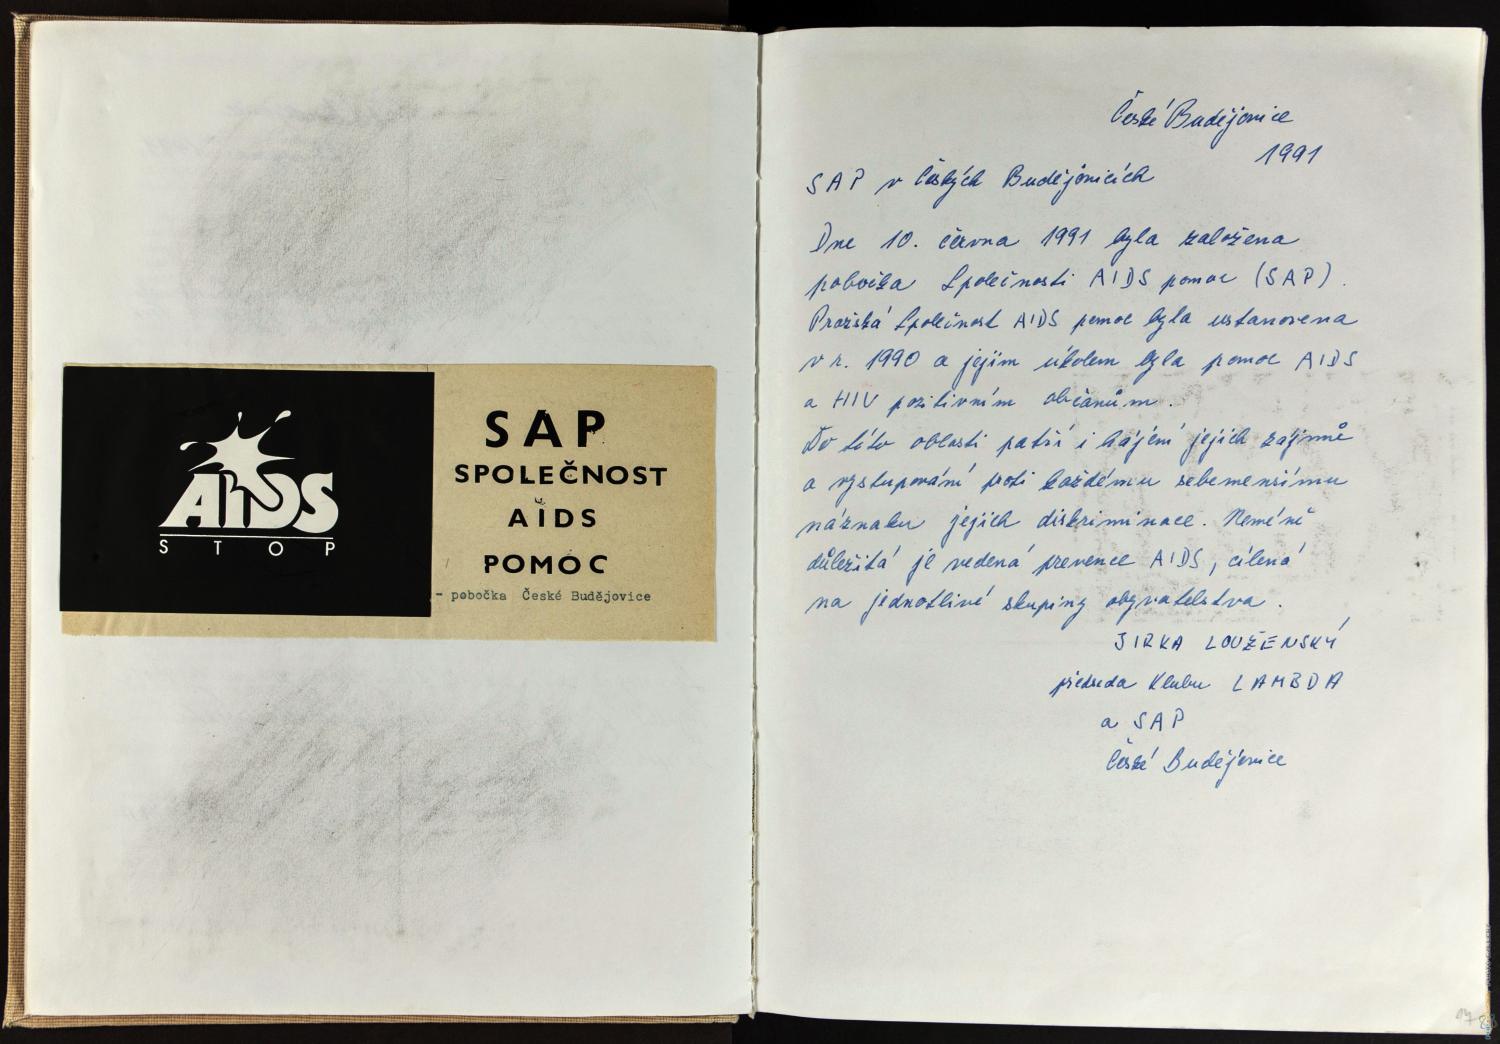 AIDS
STOP
SAP
SPOLEČNOST
AIDS
POMOC
- pobočka České Budějovice
České Budějovice
1991
SAP v Českých Budějovicích
Dne 10. června 1991 byla založena
pobočka Společnosti AIDS pomoc (SAP).
Pražská Společnost AIDS pomoc byla ustanovena
v r. 1990 a jejím úkolem byla pomoc AIDS
a HIV pozitivním občanům.
Do této oblasti patří i hájení jejich zájmů
a vystupování proti každému sebemenšímu
náznaku jejich diskriminace. Neméně
důležitá je vedená prevence AIDS, cílená
na jednotlivé skupiny obyvatelstva.
JIRKA LOUŽENSKÝ
předseda Klubu LAMBDA
a SAP
České Budějovice